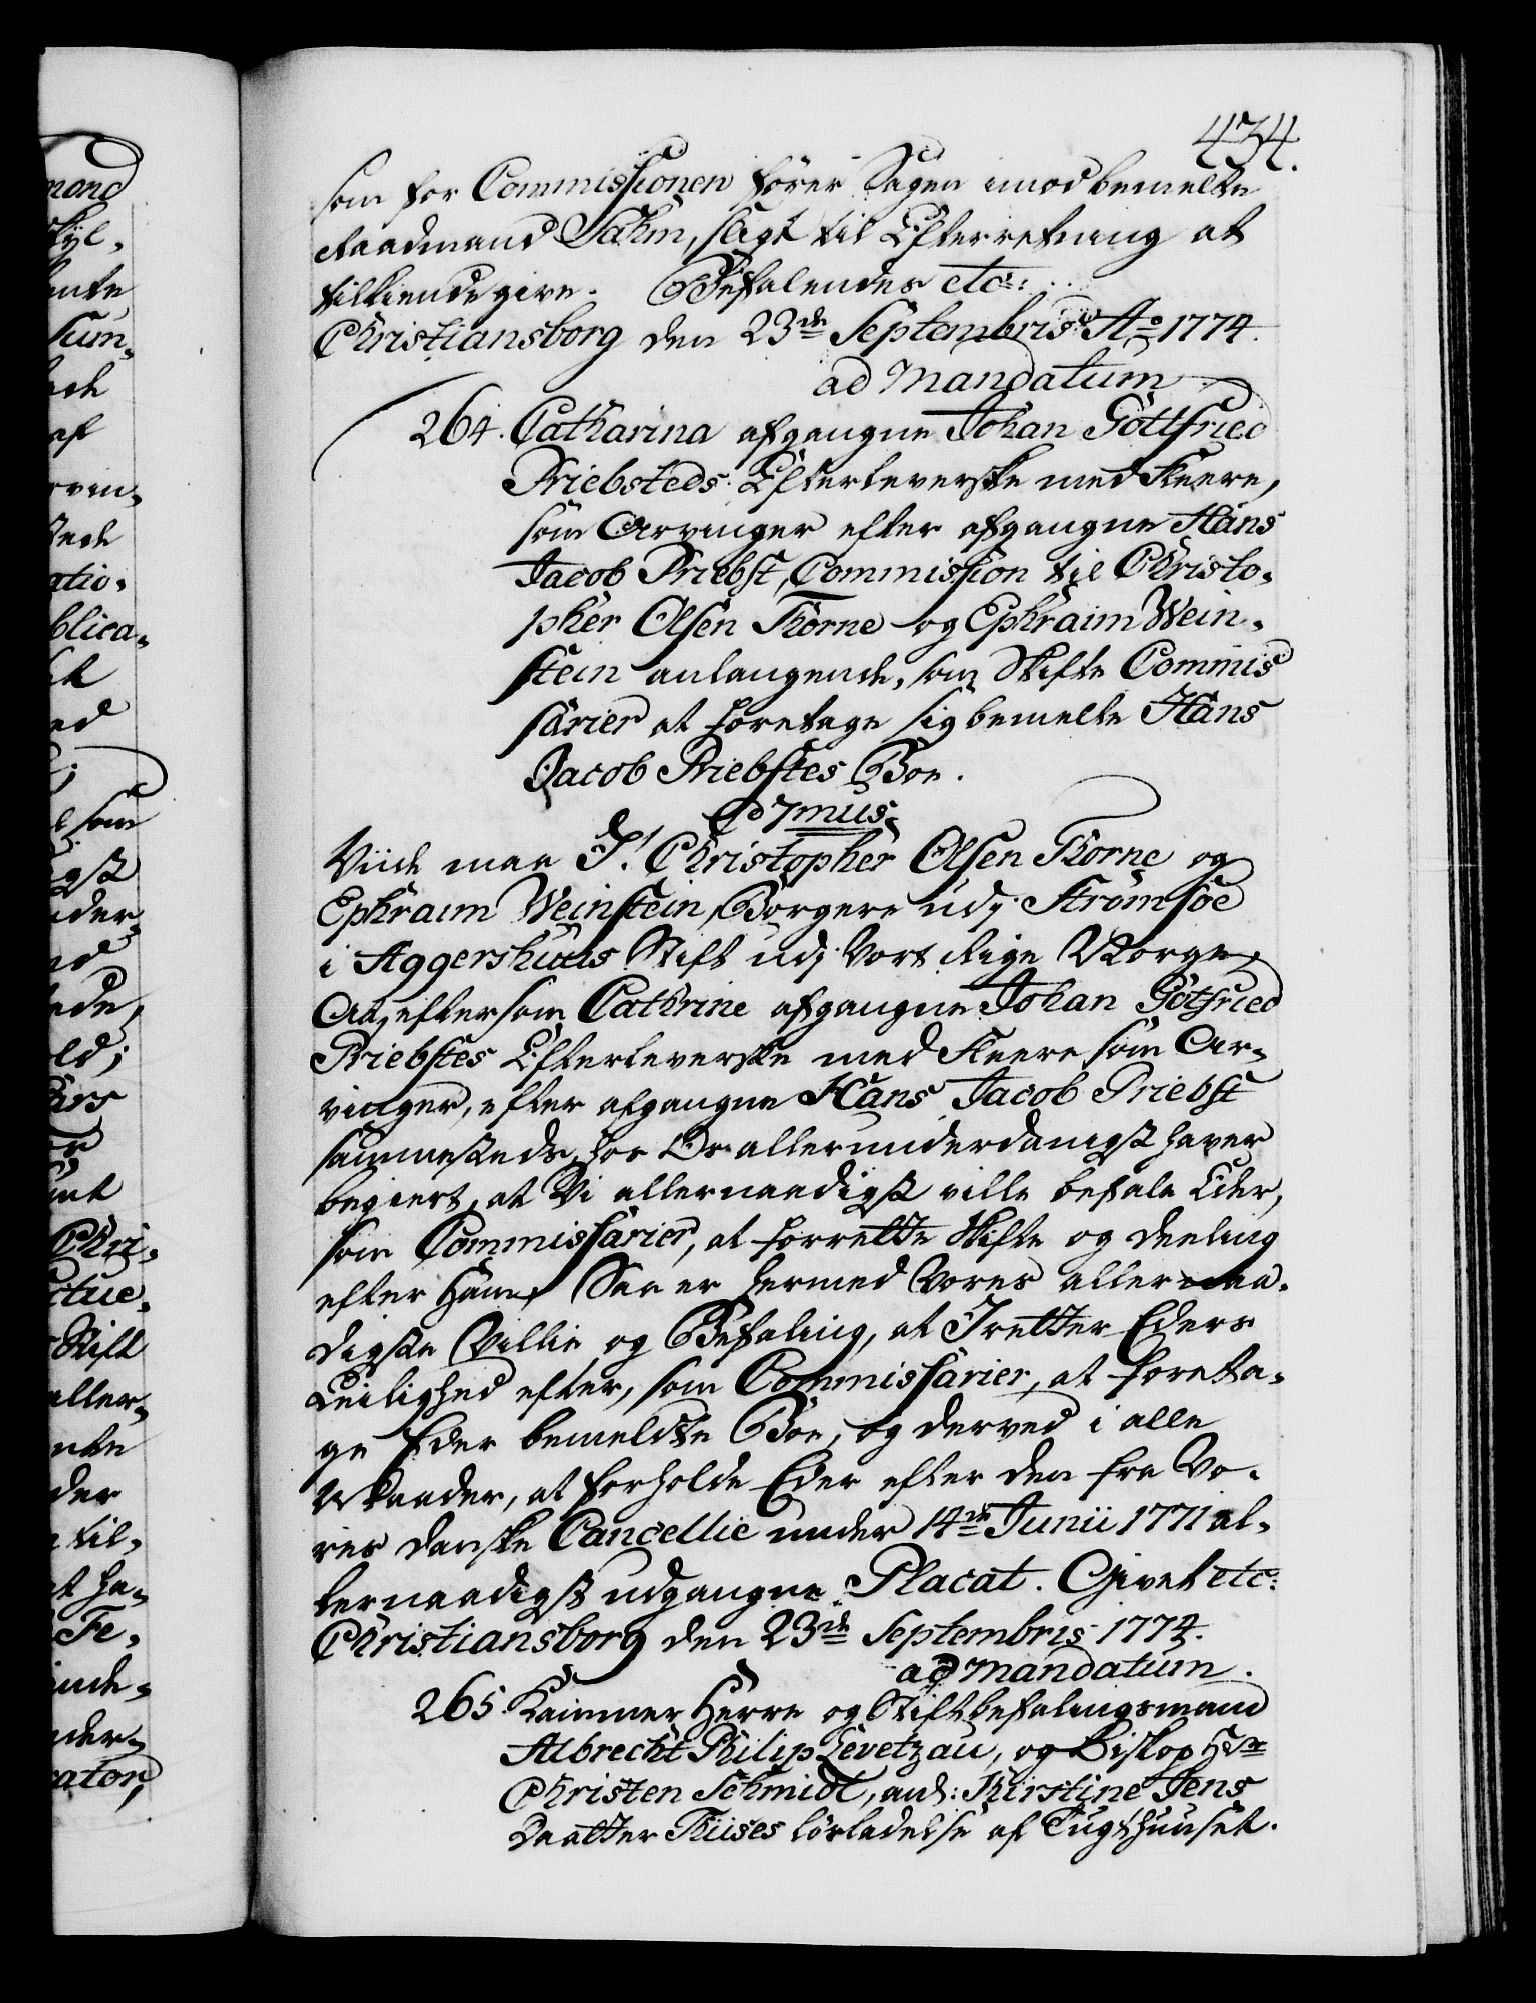 434.
som for Commissionen fører Sagen imod bemelte
Raadmand Sahm, sligt til Efterretning at
tilkiendegive. Befalendes etc:
Christiansborg den 23de Septembris Ao 1774.
ad Mandatum
264. Catharina afgangne Johan Gottfried
Priebsteds Efterleverske med Fleere,
som Arvinger efter afgangne Hans
Jacob Priebst, Commission til Christo-
pher Olsen Thorne og Ephraim Wein-
stein anlangende, som Skifte Commis
sarier at foretage sig bemelte Hans
Jacob Priebstes Boe.
C 7mus.
Viide maa I! Christopher Olsen Thorne og
Ephraim Weinstein, Borgere udj Strømsøe
i Aggershuus Stift udj Vort Rige Norge,
At, eftersom Cathrine afgangne Johan Gotfried
Priebstes Efterleverske med Fleere som Ar-
vinger, efter afgangne Hans Jacob Priebst
sammesteds, for Os allerunderdanigst haver
begiert, at Vi allernaadigst ville befale Eder,
som Commissarier, at forrette Skifte og Deeling
efter ham; Saa er hermed Vores allernaa-
digste Villie og Befaling, at I retter Eders
Leilighed efter, som Commissarier, at foreta-
ge Eder bemeldte Boe, og derved i alle
Maader, at forholde Eder efter den fra Vo-
res danske Cancellie under 14de Junii 1771 al-
lernaadigst udgangne Placat. Givet etc:
Christiansborg den 23de Septembris 1774.
ad Mandatum.
265. Kammer Herre og Stiftbefalingsmand
Albrecht Philip Levetzau, og Biskop Hr
Christen Schmidt, anl: Kirstine Jens
Daatter Thises løsladelse af Tugthuuset.